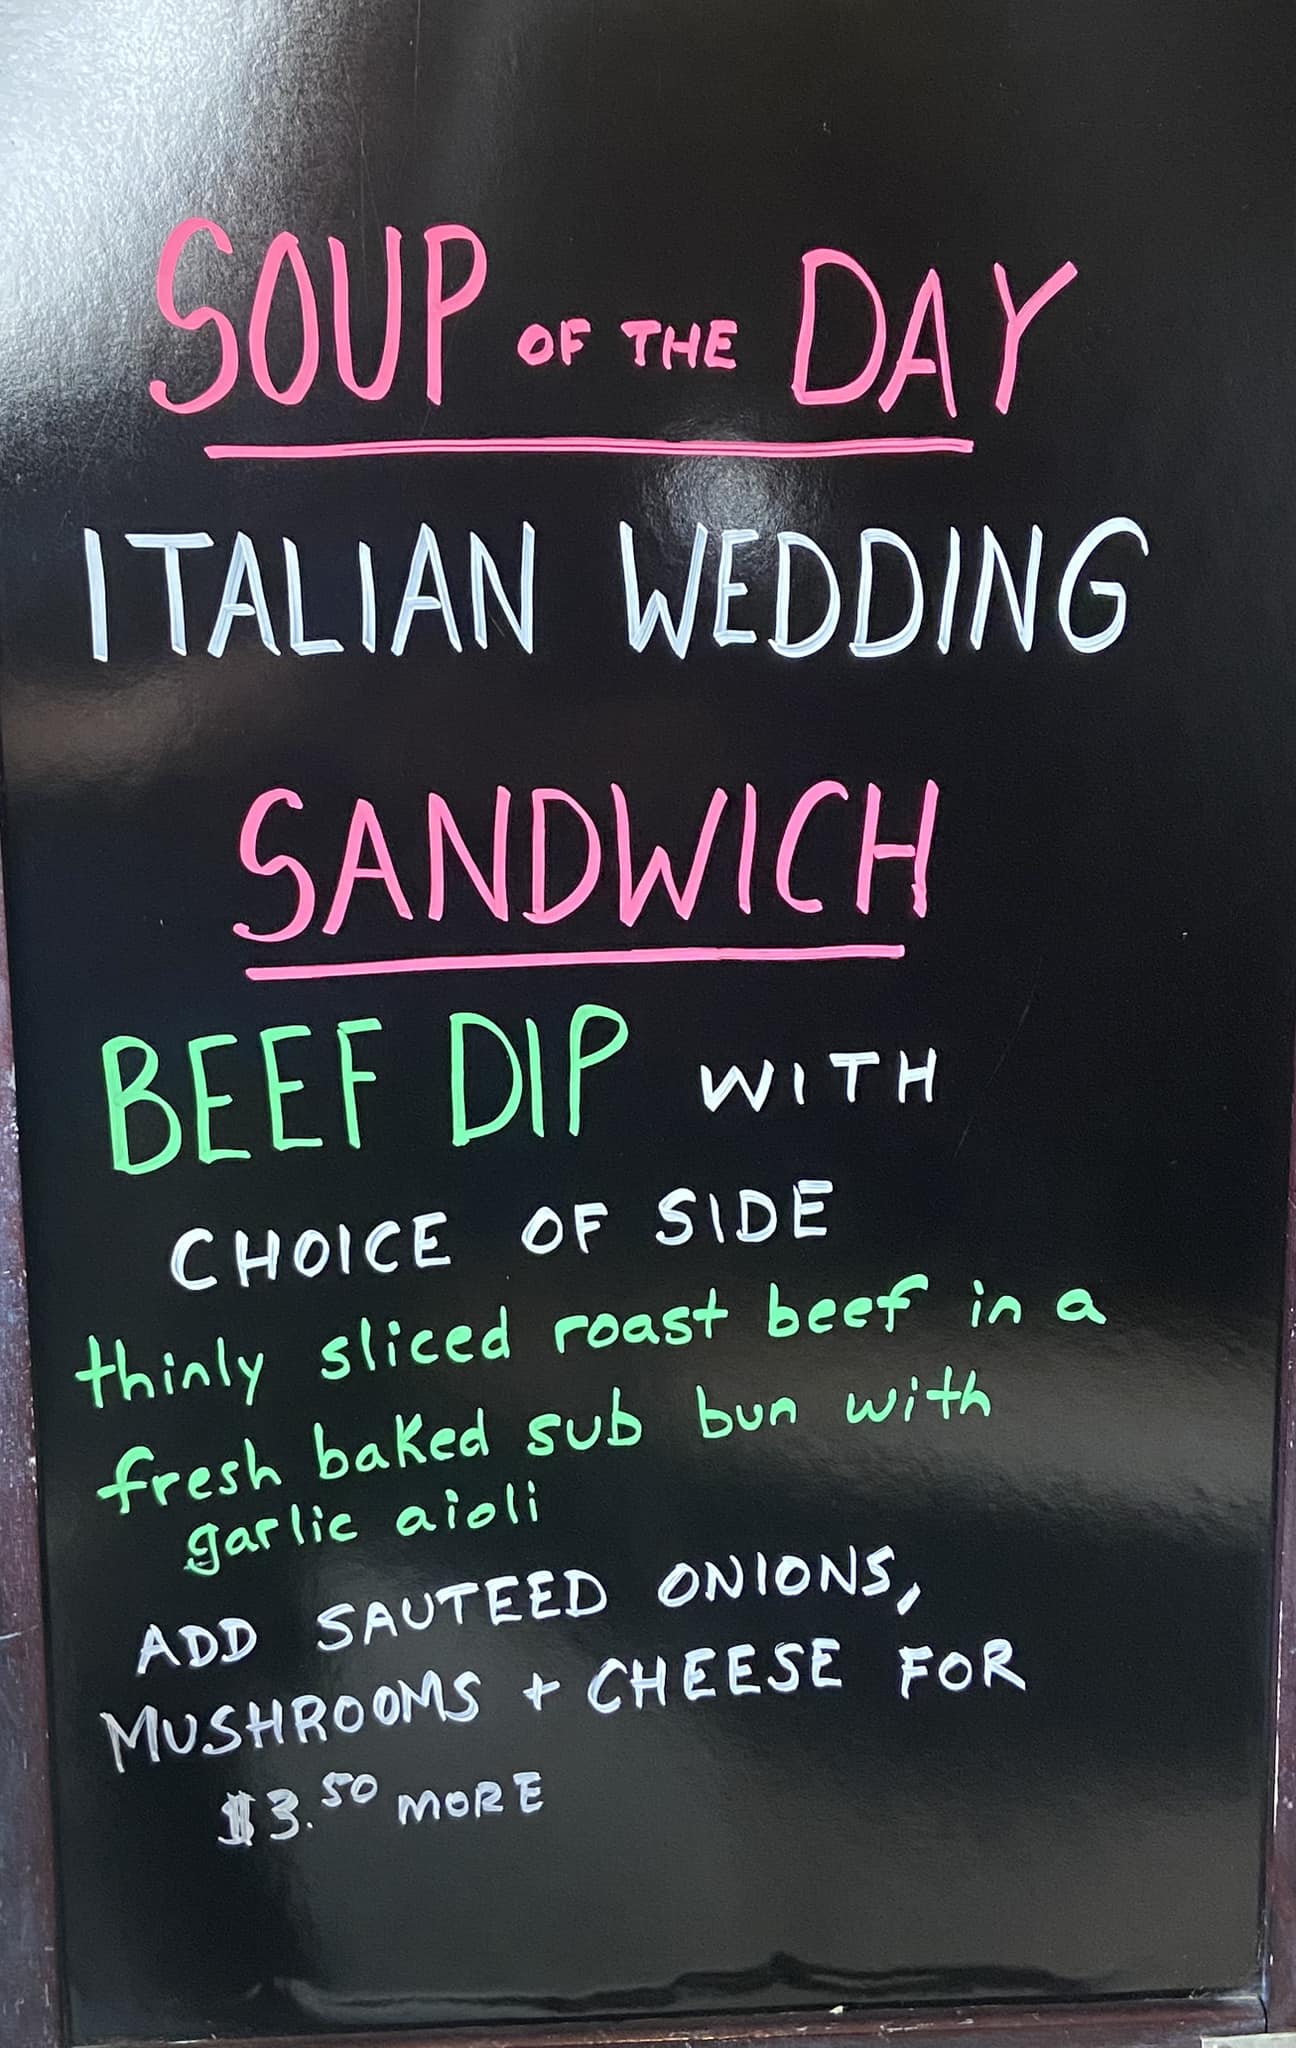 SOUP OF THE DAY
ITALIAN WEDDING
SANDWICH
BEEF DIP WITH
CHOICE OF SIDE
thinly sliced roast beef in a
fresh baked sub bun with
garlic aioli
ADD SAUTEED ONIONS,
MUSHROOMS + CHEESE FOR
$3.50 MORE